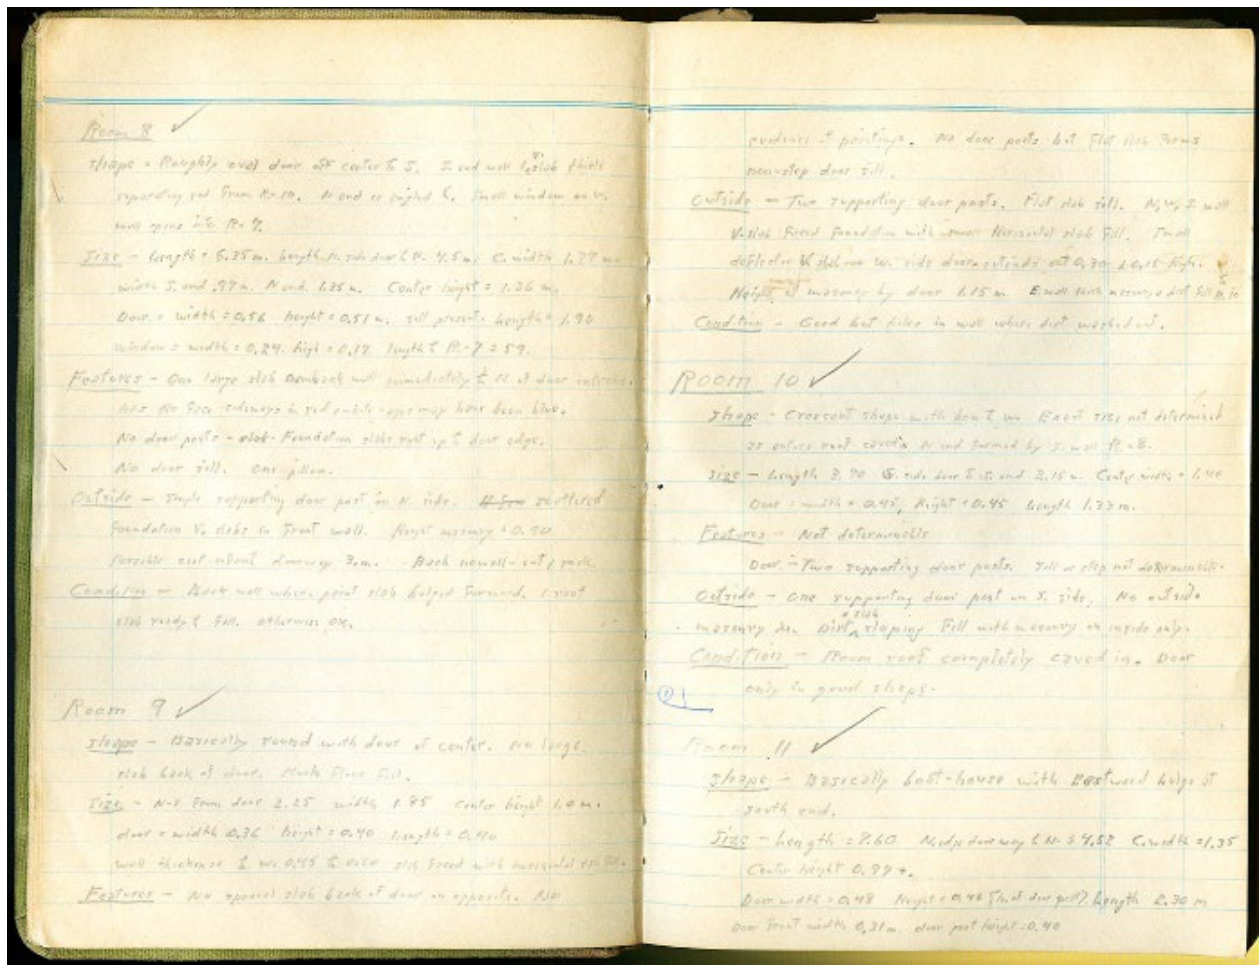 Room 8
Shape = Roughly oval door off center to S. S. end wall slab thick
separating rm from R-10. N end is angled Small window on W.
wall opens into R-9.
Size - Length = 6.35 m. length N. side door to N. 4.5 m. C. width 1.77 m
width S. end .97 m. N end 1.35 m. Center height = 1.36 m.
Door = width = 0.56 height = 0.51 m. sill present. Length = 1.90
window = width = 0.24. high = 0.17 length to R-7 = 59.
Features - One large slab on back wall immediately to N of door entrance.
has No Face sideways in red may have been blue.
No door posts - Foundation slabs right up to door edge.
No door sill. One pillow.
Outside - Single supporting door post on N. side. scattered
Foundation V. slabs in Front wall. Height masonry = 0.90
Possible 3 m. Back
Condition - Back wall where point slab bulged Forward. 1 roof
slab ready to Fall. otherwise OK.
Room 9
Shape - Basically round with door at center. No large
slab back of door. Much Floor Fill.
Size - N-S From door 2.25 width 1.85 center height 1.0 m.
door = width 0.36 height = 0.40 length = 0.40
wall thickness 0.45 to 0.60 slab Faced with horizontal
Features - No special slab back of door on opposite. No
evidence of paintings. No door posts but Flat slab Forms
non-step door sill.
Outside - Two supporting door posts. Flat slab sill. N, W, S wall
V-slab Faced Foundation with small Horizontal slab Fill. Small
deflector V slab on W. side door extends out 0.30 high.
Height of masonry by door 1.15 m. E. wall
Condition - Good but holes in wall where dirt washed out.
Room 10
Shape - Crescent shape with Exact size not determined
as entire roof caved in N end formed by S. wall R-8.
Size - Length 3.90 S. side door to S. end 2.15 m. Center width = 1.40
Door = width = 0.45, Height = 0.45 Length 1.33 m.
Features - Not determinable
Door - Two supporting door posts. Sill or step not determinable.
Outside - One supporting door post on S. side. No outside
masonry Dirt + slab sloping Fill with masonry on inside only.
Condition - Room roof completely caved in. Door
only in good shape.
Room 11
Shape - Basically boat-house with Eastward bulge at
south end.
Size - Length = 8.60 N. edge doorway to N = 4.52 C. width = 1.35
Center height 0.97+.
Door width = 0.48 Height = 0.46 (ht. of door post). Length 2.30 m
Door Front width 0.31 m. door post height = 0.40